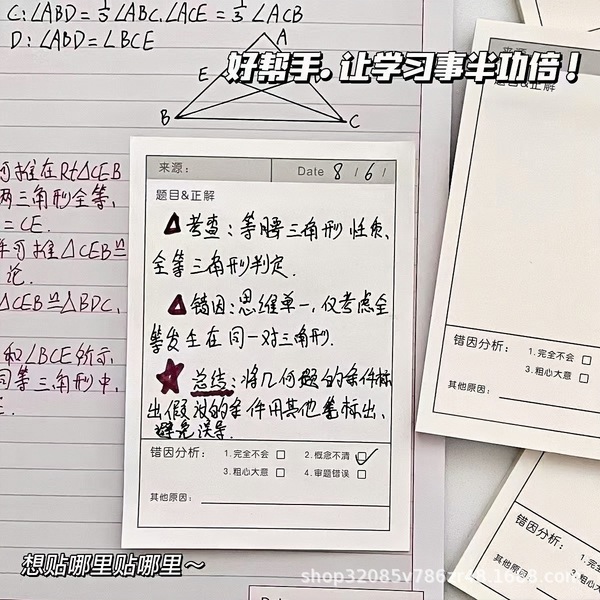 C:∠ABD=⅓∠ABC,∠ACE=⅓∠ACB
D:∠ABD=∠BCE
A
好帮手.让学习事半功倍!
E
B
C
可推在Rt△CEB
两三角形全等,
=CE.
可推△CEB≌
论.
△CEB≌△BDC,
和∠BCE所示
同等三角形中,
来源:
Date 8 / 6 /
题目&正解
△考查:等腰三角形性质、
全等三角形判定.
△错因:思维单一,仅考虑全
等发生在同一对三角形.
★总结:将几何题的条件标
出假设的条件用其他笔标出、
避免误导.
错因分析:
1.完全不会 □ 2.概念不清 ☑
3.粗心大意 □ 4.审题错误 □
其他原因:
来源:
题目&正解
错因分析:
1.完全不会 □
3.粗心大意 □
其他原因:
错因分析:
1.完
3.粗
其他原因:
想贴哪里贴哪里~